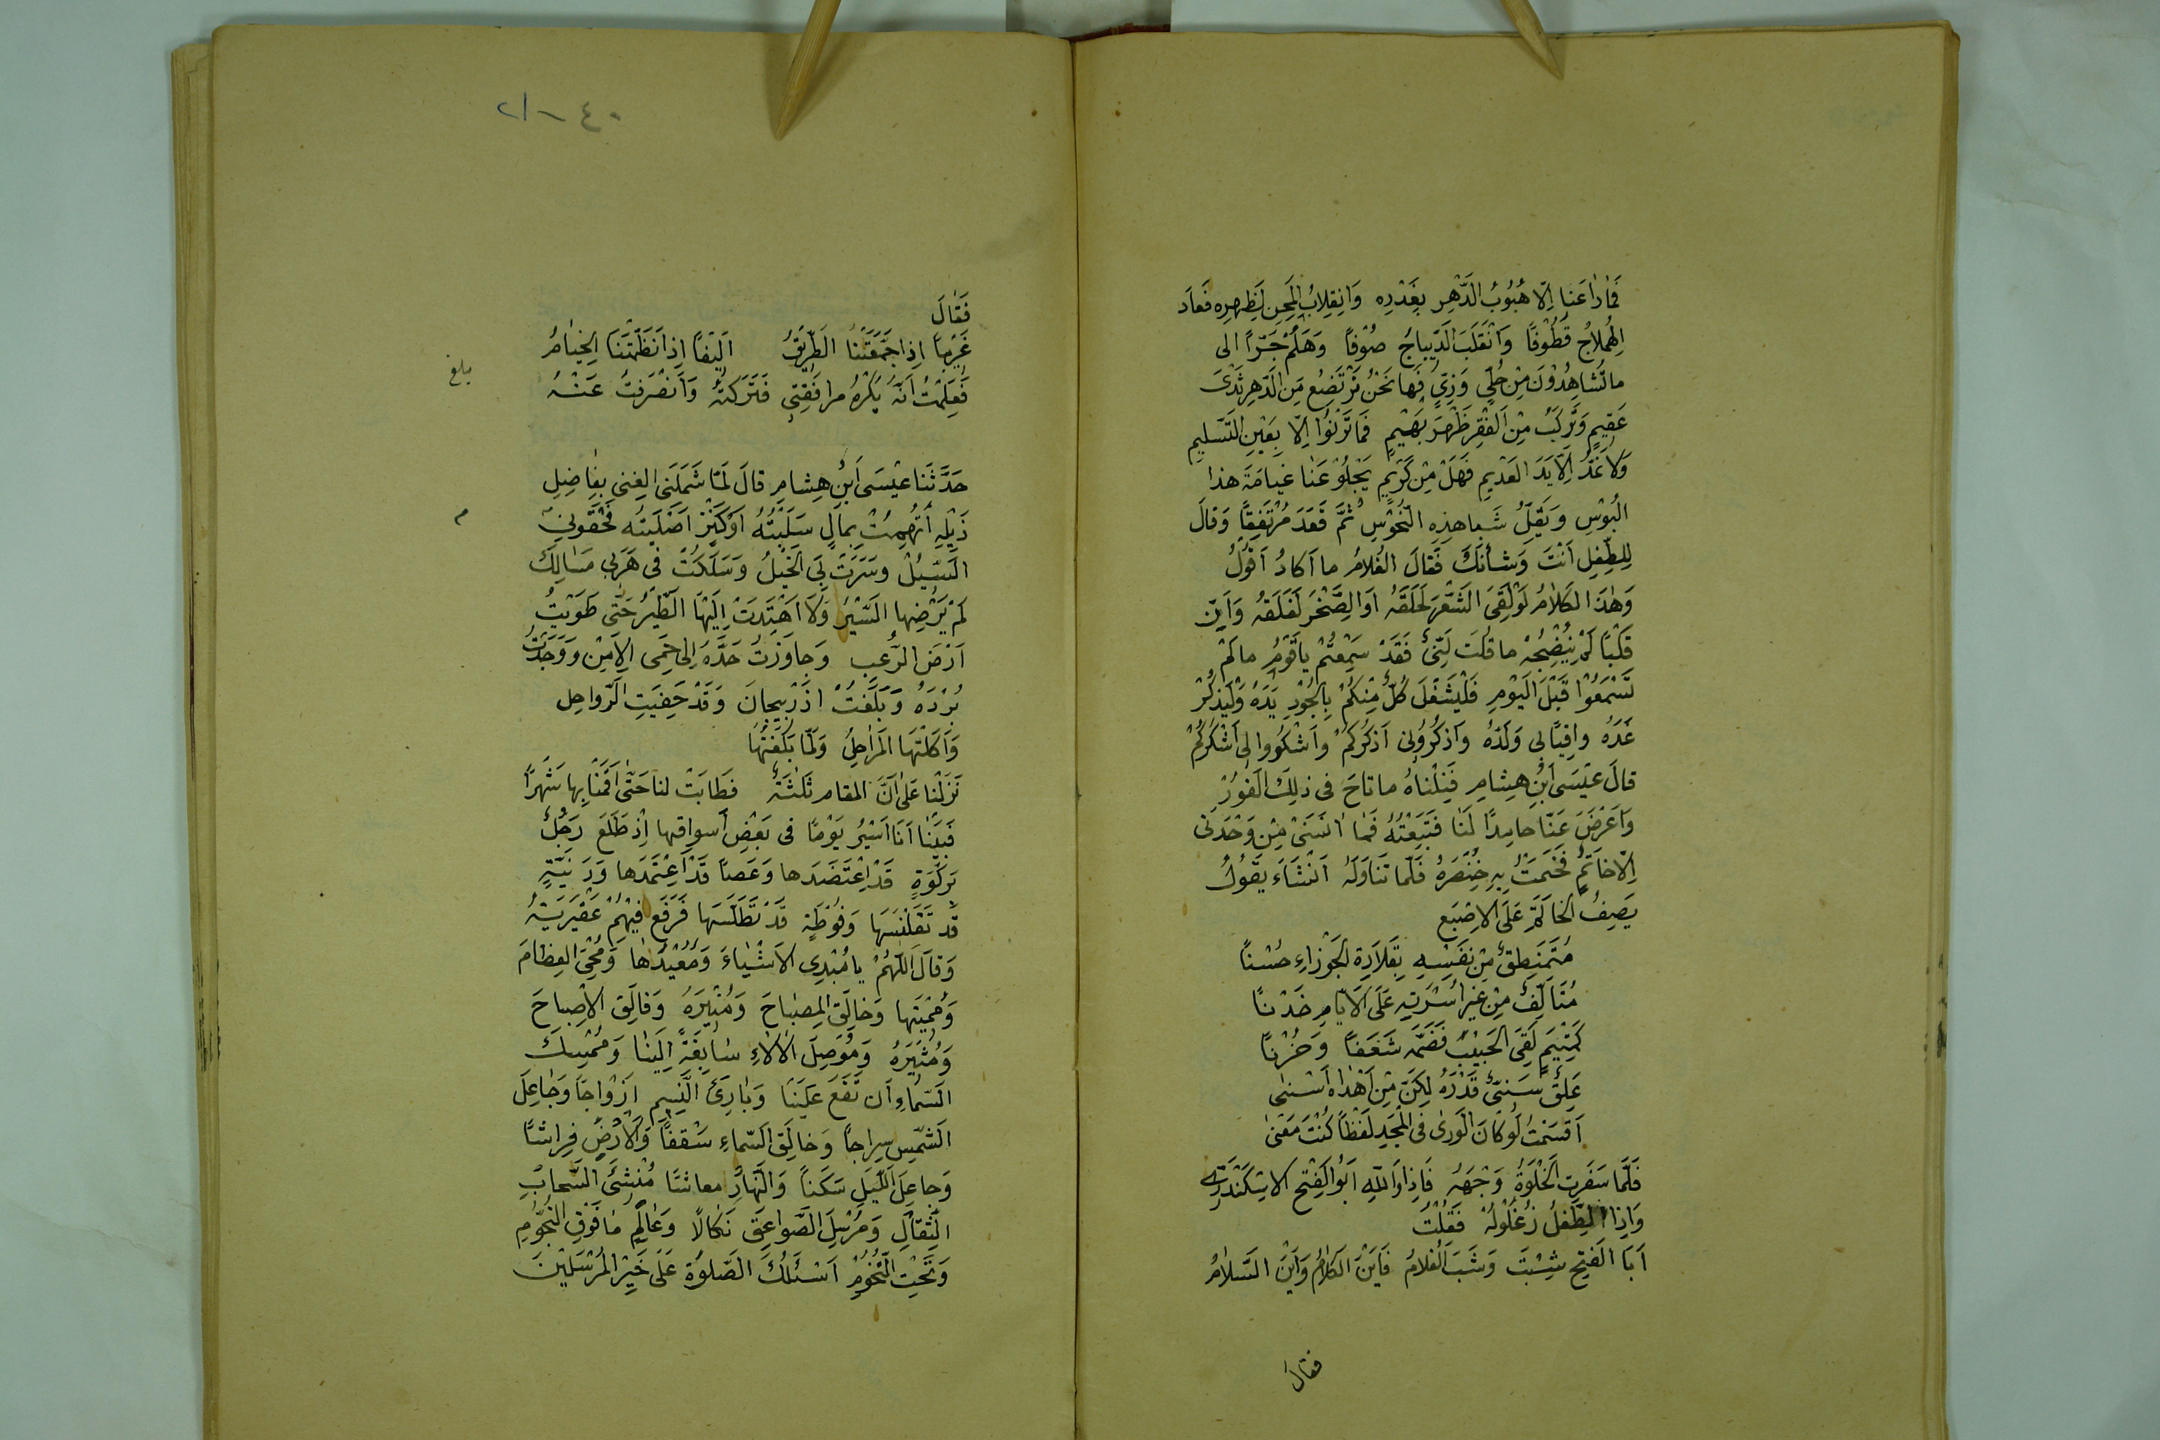 فَمٰا رٰاعَنا اِلّا هُبُوبُ الدَّهْرِ بِغَدْرِه وَانِقِلابُ الِمَجِن لِظَهرِه فَعاَد
اِلهِملاجُ قَطُوفًا وَانْقَلَبَ الَدّيباجُ صُوْفًا وَهَلُمَّ جَرّاً الى
ما تُشاهِدُوْنَ مِنْ حٰلى وَزِىّ فَها نَحْنُ نَرْتَضِعُ مِنَ الَدّهِرِ ثَدْىَ
عَقِيمٍ وَنَركَبُ مِنَ اَلفَقِر ظَهْرَ بَهَيْمٍ فَما نَرْنُوُا اِلّا بِعَيْنِ التَّسليِمِ
وَلا نَمُدُّ اِلّا يَدَ العَديمِ فَهَلْ مِنْ كَرَيمٍ يَجْلُوْ عَنا غَيامَةَ هذا
البُؤسِ وَيَفِلُّ شَبا هذِهِ النُحُوْسِ ثُمَّ قَعَدَ مُرْتَفِقاً وَقالَ
لِلطّفِلِ اَنْتَ وَشأنَكَ فَقالَ الغُلامُ ما اَكادُ اَقُوْلُ
وَهٰذَا الكَلامُ لَوْ لَقِىَ الشَّعْرَ لَحَلَقَهُ اوَالصَّخْرَ لَفَلَقَهُ وَاِنّ
قَلْبًا لَمْ يُنْضِجْهُ ما قُلتَ لَنِئُ فَقَدْ سَمِعتُمْ ياقَوْمُ ما لَمْ
تَسْمَعُوْا قَبْلَ اليَوْمِ فَلْيَشْغَلَ كُلُّ مِنْكُمْ بِالجُوْدِ يَدَهُ وَلْيَذكُرْ
غَدَهُ واقِيًا بى وَلَدَهُ وَاذكُرُوْنى اَذكُركُمْ واَشْكُرُوا لى اَشْكُركُمْ
قالَ عيْسَى اَبْنُ هِشامِ فَنِلْناهُ ما تاحَ فى ذلِكَ الفَوْرِ
وَاَعْرَضَ عَنّا حامِدًا لَنٰا فَتَبِعْتُهُ فَمٰا اٰنَسَنىْ مِنْ وَحْدَتى
اِلّا خاتَمٌ خَتَمْتُ بِهِ خِنْصَرَهُ فَلَمّا تَناوَلَهُ اَنْشَاءَ يَقُولُ
يَصِفُ الخاتَمَ عَلَى الاِصْبَع
مُتَمَنطِقٌ مِنْ نَفْسِهِ بِقَلادَةِ الجَوْزاءِ حُسْنًا
مُتَأَلّفٌ مِنْ غَيْرِ اُسْرَتِهِ عَلَى الاَيّامِ خَدْنًا
كَمُتَيَّمٍ لَقِىَ الحَبيْبُ فَضَمَّهُ شَغَفاً وَحُزْنًا
عَلِقٌ سَنِىٌّ قَدْرُهُ لكِنَّ مَنْ اَهْداه اَسْنٰى
اَقسَمْتُ لَو كانَ الَورى فى المَجَدِ لَفظًا كُنْتَ مَعْنىٰ
فَلَمّا سَفَرتِ الخَلْوَةُ وَجْهَهُ فَاِذا وَاللهِ اَبُوُ الفَتْحِ الاِسكَنْدَرىُّ
وَاِذا الطِّفلُ زُغْلُولُهُ فَقُلْتُ
اَبَا الفَتِح شِبْتَ وَشَبَ الغُلامُ فَاَيْنَ الكَلامُ وَاَيْنَ السَّلامُ
فقال
٤٠
فَقالَ
غَرَيباً اِذا جَمَعَتْنا الطَّريقُ اَليْفاً اِذا نَظَمَتْنَا الخِيٰامُ
فَعَلِمْتُ اَنَّهُ يَكْرَهُ مرافَقَتى فَتَرَكتُهُ وَاَنصَرَفتُ عَنْهُ
بلغ
حَدَّثَنا عيْسَى اَبْنُ هِشامِ قالَ لَمّا شَمَلَنى الِغنى بِفٰاضِلِ
م
ذَيْلِهِ اُتُّهِمْتُ بمالٍ سَلَبْتُهُ اَوْ كَنْزٍ اَصَلْبتُه فَحْقَونى
السَّيْلُ وسَرَتْ بى الخَيلُ وَسَلَكتُ فى هَرَبى مَسٰالِكَ
لَمْ يَرَضْها السَّيْرُ وَلا اهْتَدَتْ اِلَيْها الطَّيْرُ حَتّى طَوَيْتُ
اَرْضَ الرُعبِ وَجاوَزتُ حَدَّهُ اِلىٰ حَمِى الاَمْنِ وَوَجَدْتُ
بَرْدَهُ وَبَلَغْتُ اذَرْبيجانَ وَقَدْ حَفِيَتِ الرَّواحِل
وَاَكَلَتْهَا المَراحِلُ وَلَمّا بَلَغْتُها
نَزَلْنا عَلىٰ اَنَّ المقامَ ثَلٰثَةٌ فَطابَتْ لنا حَتّٰى اَقَمْنا بِها شَهْرًا
فَبَيْنا اَنَا اَسِيْرُ يَوْمًا فى بَعْضِ اَسواقِها اِذْ طَلَعَ رَجُلٌ
بَركْوَةٍ قَدْ اِعْتَضَدَها وَعَصاً قَدْ اَعِتْمَدَها وَدَنيَّةٍ
قَد تَقَلْنَسَها وَفُوْطَةٍ قَدْ تَطَلَّسَها فَرَفَع فيْهُمْ عَقْيَرتَهُ
وَقالَ اللّٰهُمَّ يا مُبْدِى الاَشْياءَ وَمُعْيدُها وَمُحْيَى العِظامَ
وَمُمْيتَها وَخٰالِقَ المِصباحَ وَمُنْيَرهُ وَفالِقَ الاصْباحَ
وَمُثيَرهُ وَمُوْصِلَ الاٰلاءِ سٰابِغَةً اِلَينا وَمُمْسِكَ
السَماءِ اَن تَقَعَ عَلَيْنا وَبارِىَ النَّسِم اَزْواجًا وَجاعِلَ
الشَمْسِ سِراجًا وَخالِقَ السّماءِ سَقفًا وَالاَرْضِ فِراشًا
وَجاعِلَ اللَّيلِ سَكَناً وَالنَّهارِ معاشًا مُنْشِئَ السَّحابِ
الثِقالِ وَمُرسِلَ الصَّواعِقِ نَكالًا وَعٰالِمَ مٰا فَوْقَ النُجُّوْمِ
وَتَحْتَ التُخُوُمِ اَسْئَلُكَ الصَّلوةَ عَلىٰ خَيْرِ المُرْسَليْنَ